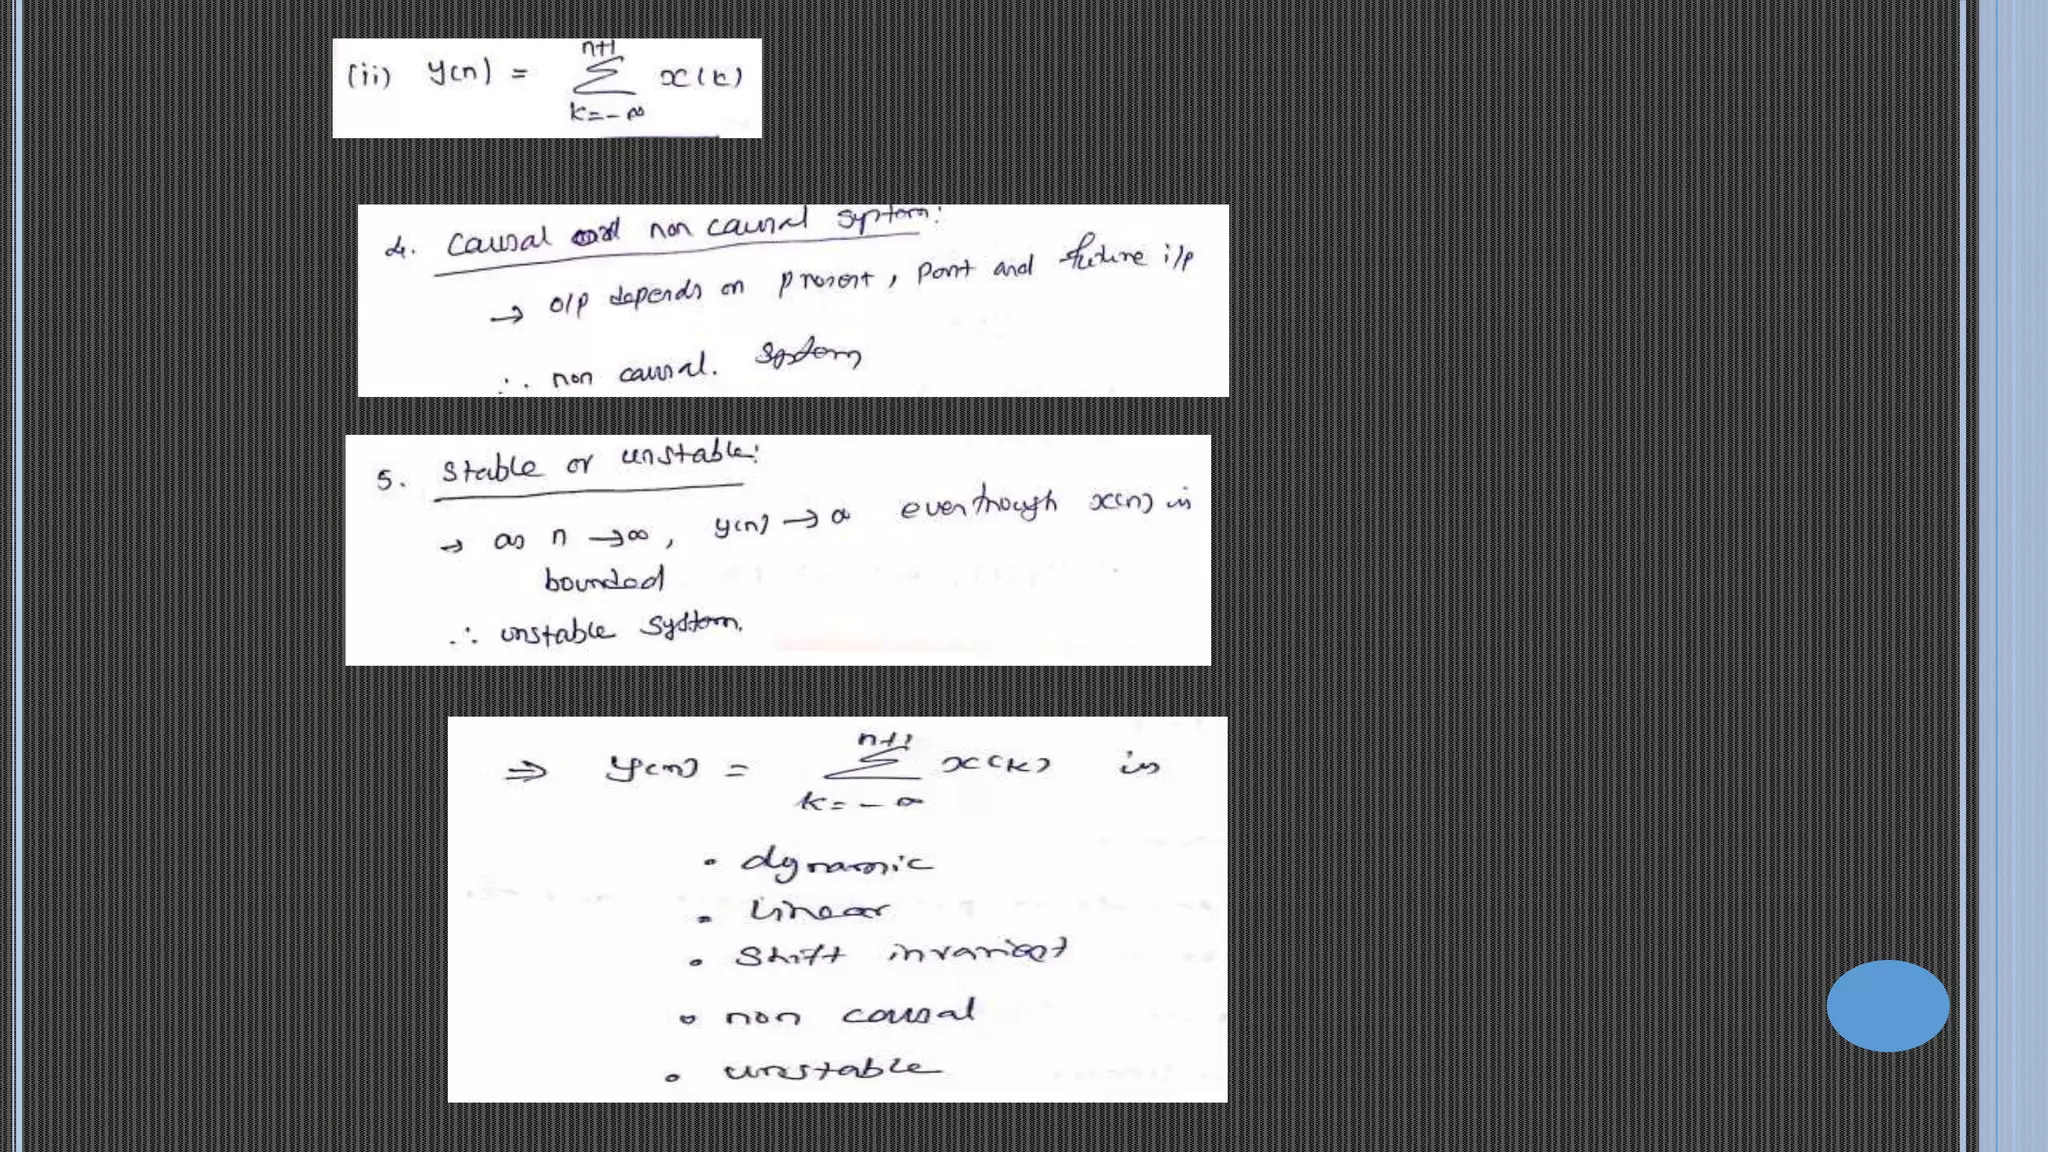 (ii) y(n) = n+1 Σ k=-∞ x(k)
4. Causal or non causal system:
→ o/p depends on present, past and future i/p
∴ non causal. system
5. Stable or unstable:
→ as n → ∞, y(n) → ∞ eventhough x(n) is
bounded
∴ unstable system.
⇒ y(n) = n+1 Σ k=-∞ x(k) is
• dynamic
• Linear
• Shift invariant
• non causal
• unstable